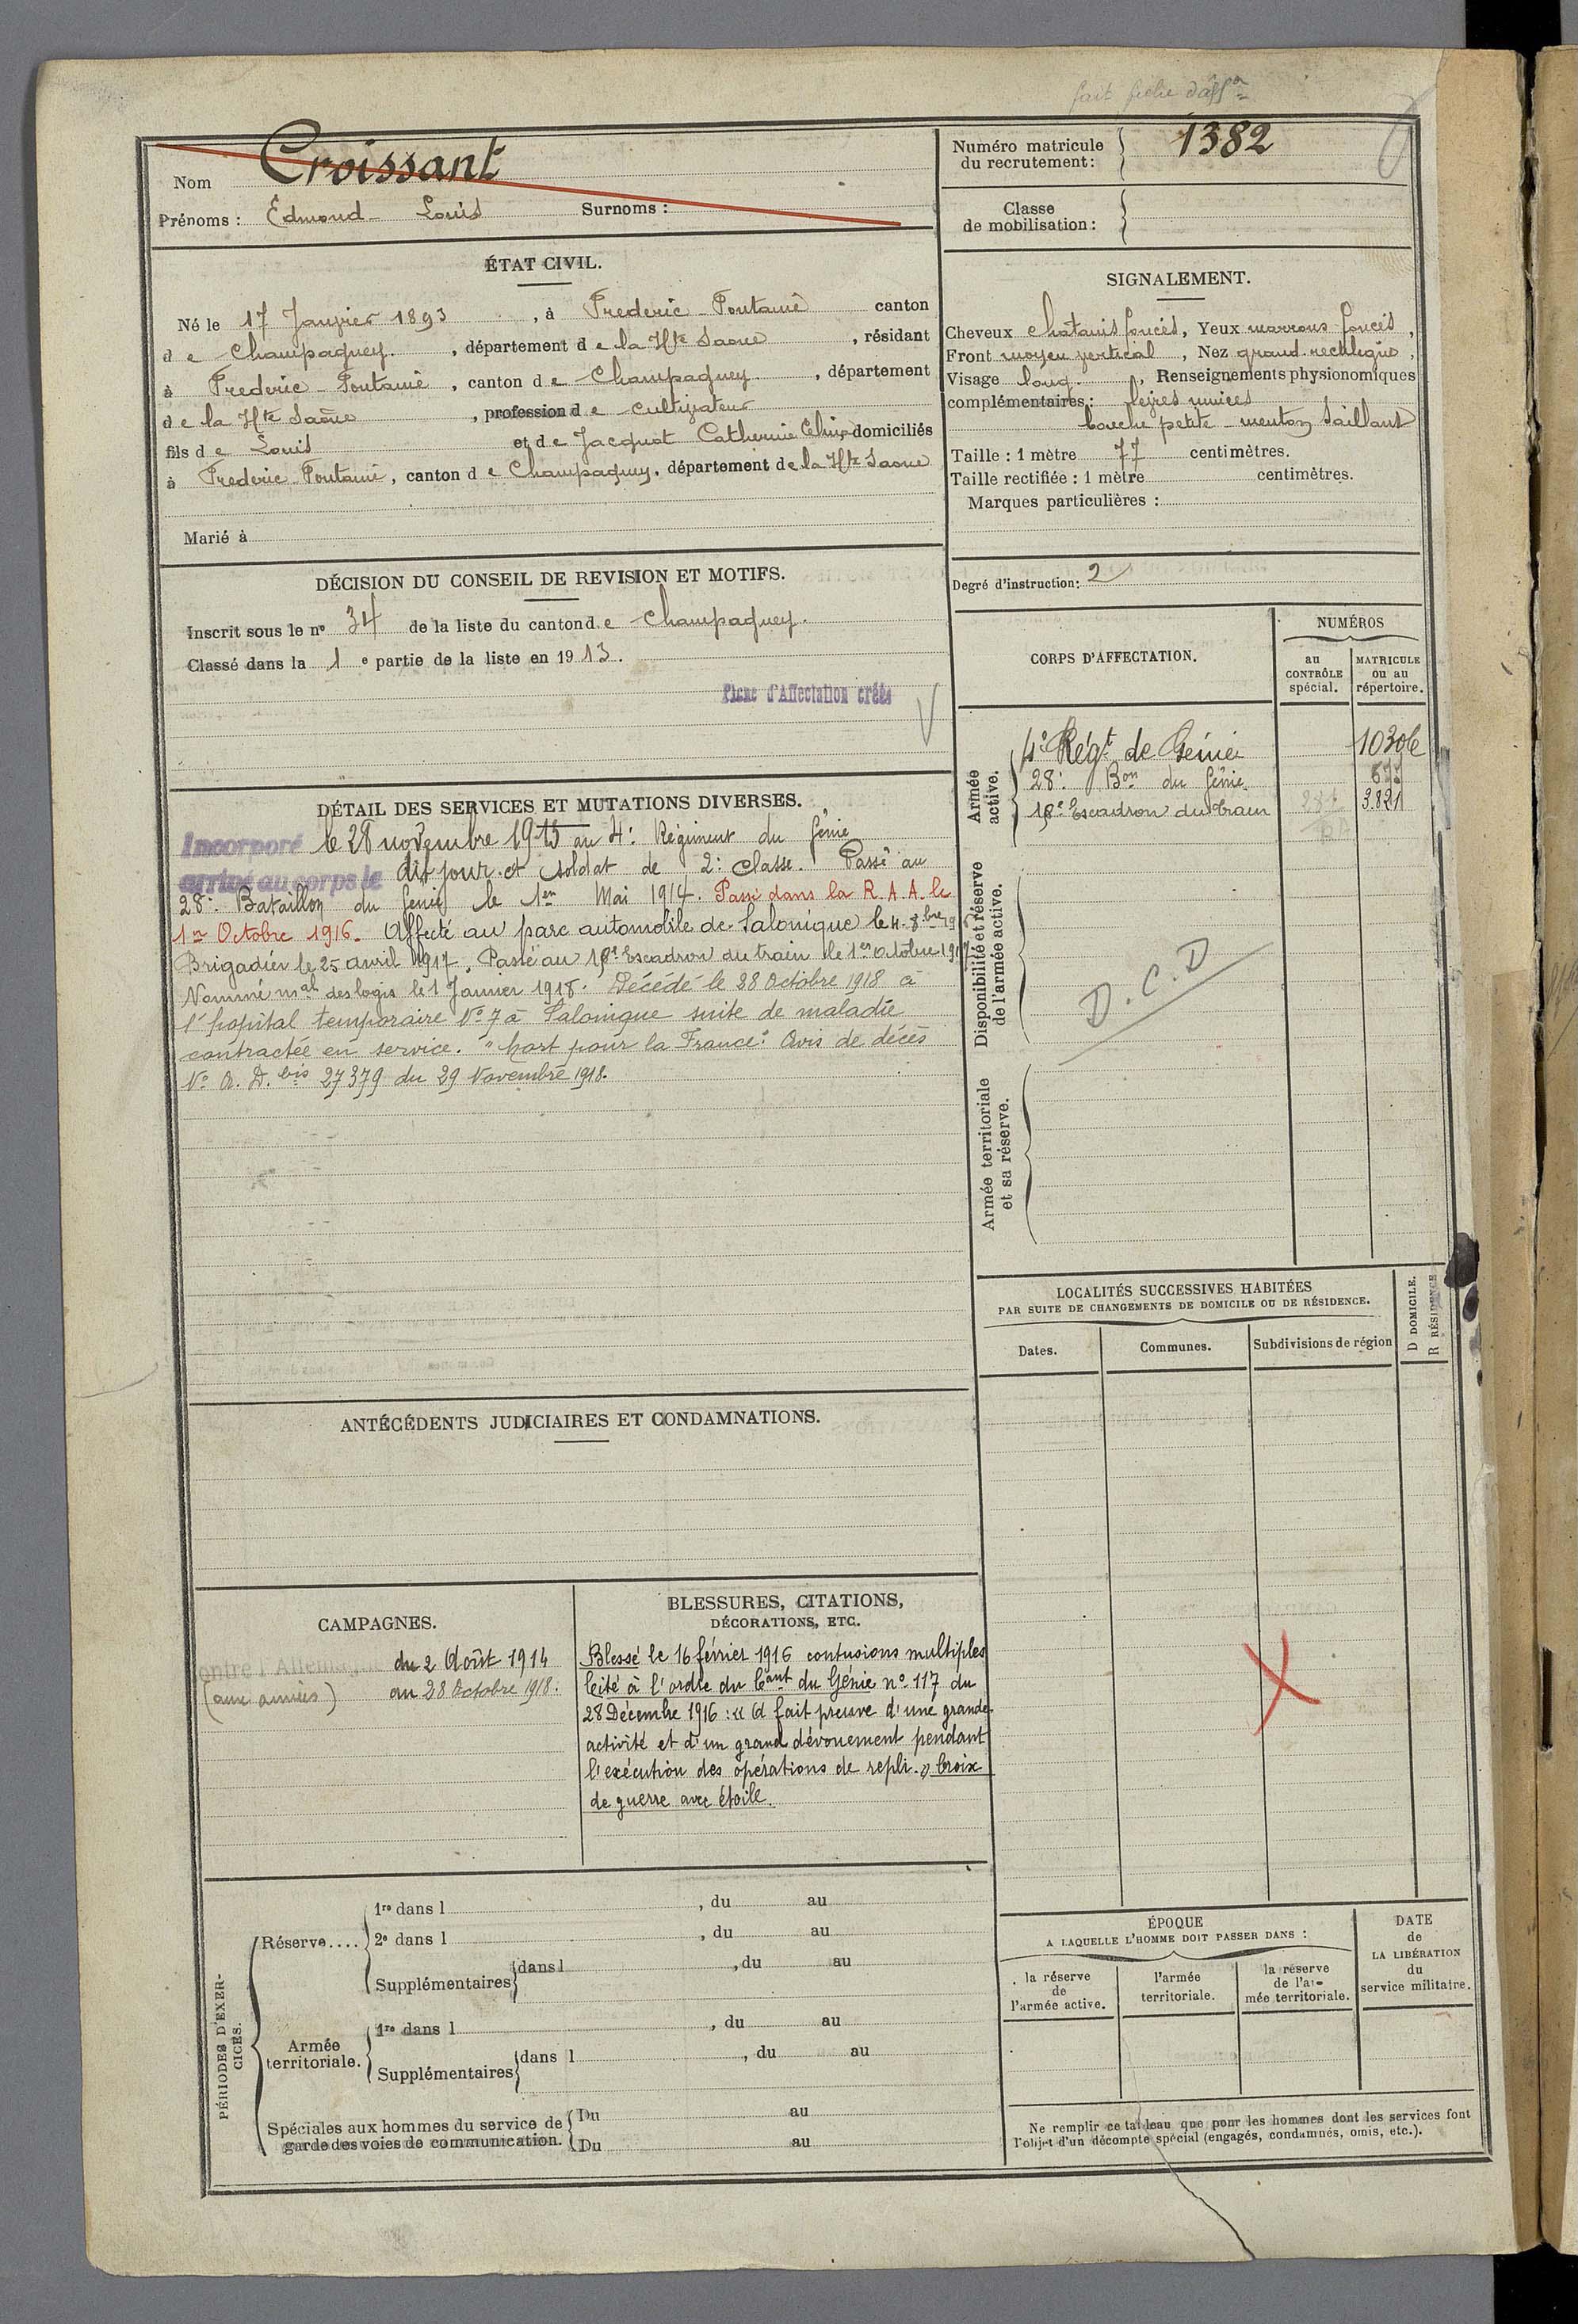 fait fiche d'affon
Nom Croissant
Prénoms : Edmond Louis Surnoms :
Numéro matricule du recrutement : 1382
Classe de mobilisation :
ÉTAT CIVIL.
Né le 17 Janvier 1893, à Frederic-Fontaine canton
de Champagney, département de la Hte Saone, résidant
à Frederic-Fontaine, canton de Champagney, département
de la Hte Saône, profession de cultivateur
fils de Louis et de Jacquot Catherine domiciliés
à Frederic-Fontaine, canton de Champagney, département de la Hte Saone
Marié à
SIGNALEMENT.
Cheveux chatains foncés, Yeux marrons foncés,
Front moyen vertical, Nez grand rectiligne,
Visage long, Renseignements physionomiques
complémentaires : lèvres minces
bouche petite menton saillant
Taille : 1 mètre 77 centimètres.
Taille rectifiée : 1 mètre centimètres.
Marques particulières :
Degré d'instruction : 2
DÉCISION DU CONSEIL DE REVISION ET MOTIFS.
Inscrit sous le no 34 de la liste du canton de Champagney.
Classé dans la 1e partie de la liste en 1913.
Fiche d'Affectation créée
CORPS D'AFFECTATION.
NUMÉROS
au CONTRÔLE spécial.
MATRICULE ou au répertoire.
Armée active.
4e Régt de Génie
28e Bon du Génie
Escadron du train 3821
Disponibilité et réserve de l'armée active.
D.C.D
Armée territoriale et sa réserve.
DÉTAIL DES SERVICES ET MUTATIONS DIVERSES.
Incorporé le 28 novembre 1913 au 4e Régiment du Génie
arrivé au corps le dit jour et soldat de 2e classe. Passé au
28e Bataillon du Génie le 1er Mai 1914. Passé dans la R.A.A. le
1er Octobre 1916. Affecté au parc automobile de Salonique le 4-8bre 19
Brigadier le 25 avril 1917. Passé au Escadron du train le 1er Octobre 1917
Nommé mal des logis le 1 Janvier 1918. Décédé le 28 Octobre 1918 à
l'hopital temporaire No 7 à Salonique suite de maladie
contractée en service. "Mort pour la France" Avis de décès
No A.D. bis 27379 du 29 Novembre 1918.
LOCALITÉS SUCCESSIVES HABITÉES
PAR SUITE DE CHANGEMENTS DE DOMICILE OU DE RÉSIDENCE.
Dates. Communes. Subdivisions de région
D DOMICILE.
R RÉSIDENCE
ANTÉCÉDENTS JUDICIAIRES ET CONDAMNATIONS.
CAMPAGNES.
contre l'Allemagne du 2 Août 1914
(aux armées) au 28 Octobre 1918.
BLESSURES, CITATIONS,
DÉCORATIONS, ETC.
Blessé le 16 février 1916 contusions multiples
Cité à l'ordre du Cant du Génie no 117 du
28 Décembre 1916 : « A fait preuve d'une grande
activité et d'un grand dévouement pendant
l'exécution des opérations de repli. » Croix
de guerre avec étoile.
PÉRIODES D'EXERCICES.
Réserve....
1re dans l , du au
2e dans l , du au
Supplémentaires dans l , du au
Armée territoriale.
1re dans l , du au
Supplémentaires dans l , du au
Spéciales aux hommes du service de garde des voies de communication.
Du au
Du au
ÉPOQUE
A LAQUELLE L'HOMME DOIT PASSER DANS :
la réserve de l'armée active.
l'armée territoriale.
la réserve de l'armée territoriale.
DATE de LA LIBÉRATION du service militaire.
Ne remplir ce tableau que pour les hommes dont les services font
l'objet d'un décompte spécial (engagés, condamnés, omis, etc.).